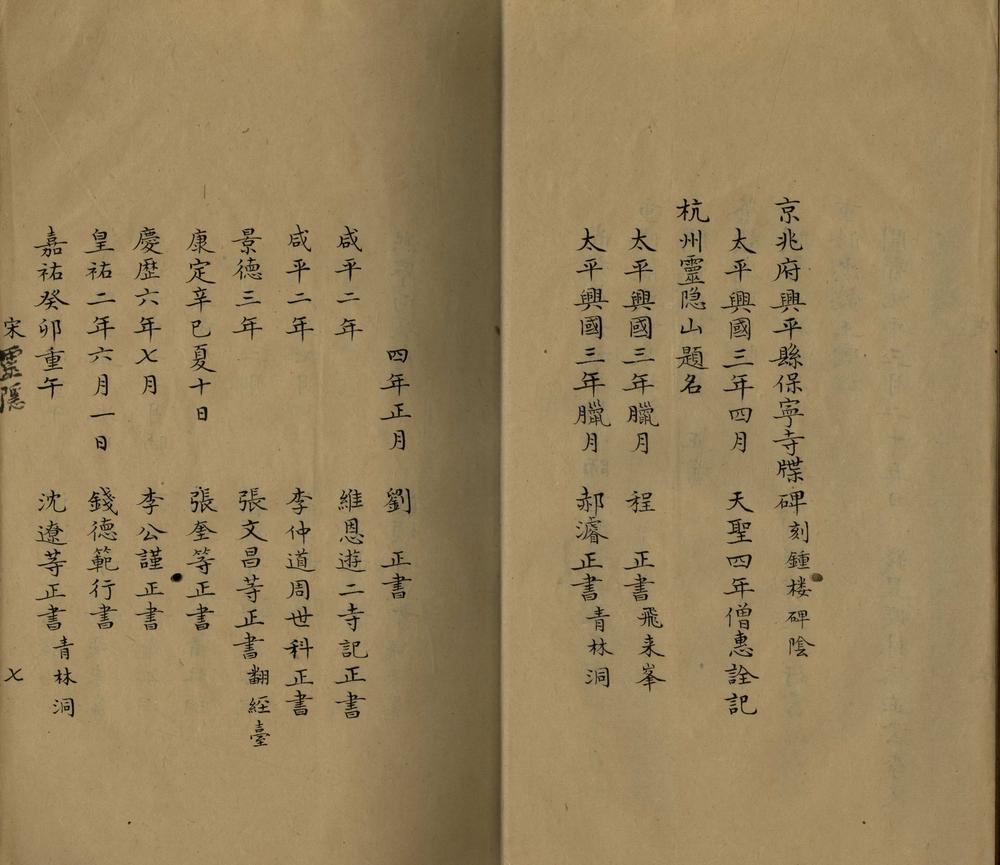 京兆府興平縣保寧寺牒碑刻鍾楼碑陰
太平興國三年四月 天聖四年僧惠詮記
杭州靈隐山題名
太平興國三年臘月 程 正書飛来峯
太平興國三年臘月 郝濬正書青林洞
四年正月 劉 正書
咸平二年 維恩遊二寺記正書
咸平二年 李仲道周世科正書
景德三年 張文昌等正書翻經臺
康定辛巳夏十日 張奎等正書
慶歷六年七月 李公謹正書
皇祐二年六月一日 錢德範行書
嘉祐癸卯重午 沈遼等正書青林洞
宋 靈隱 七